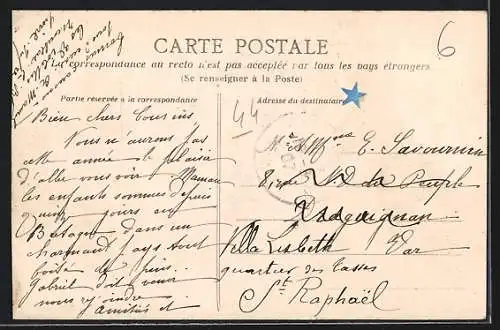 CARTE POSTALE
La correspondance au recto n'est pas acceptée par tous les pays étrangers.
(Se renseigner à la Poste)
Partie réservée à la correspondance
Adresse du destinataire
6
44
Bien chers Cousins,
Nous n'aurons pas
cette année le plaisir
d'aller vous voir. Maman
les enfants sommes depuis
quinze jours en
Bretagne dans un
charmant pays tout
boisé de pins.
Gabriel doit venir
nous rejoindre
Amitiés et
E. Savournin
N. D. du Peuple
Draguignan
Villa Lisbeth Var
quartier des Tasses
St Raphaël